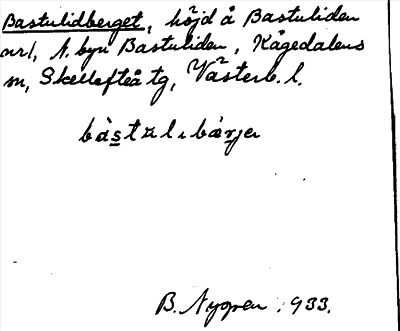 Bastulidberget, höjd å Bastuliden
nr 1, N. byn Bastuliden, Kågedalens
sn, Skellefteå tg, Västerb. l.
bàstʉlɩbærjer
B. Nygren 1933.